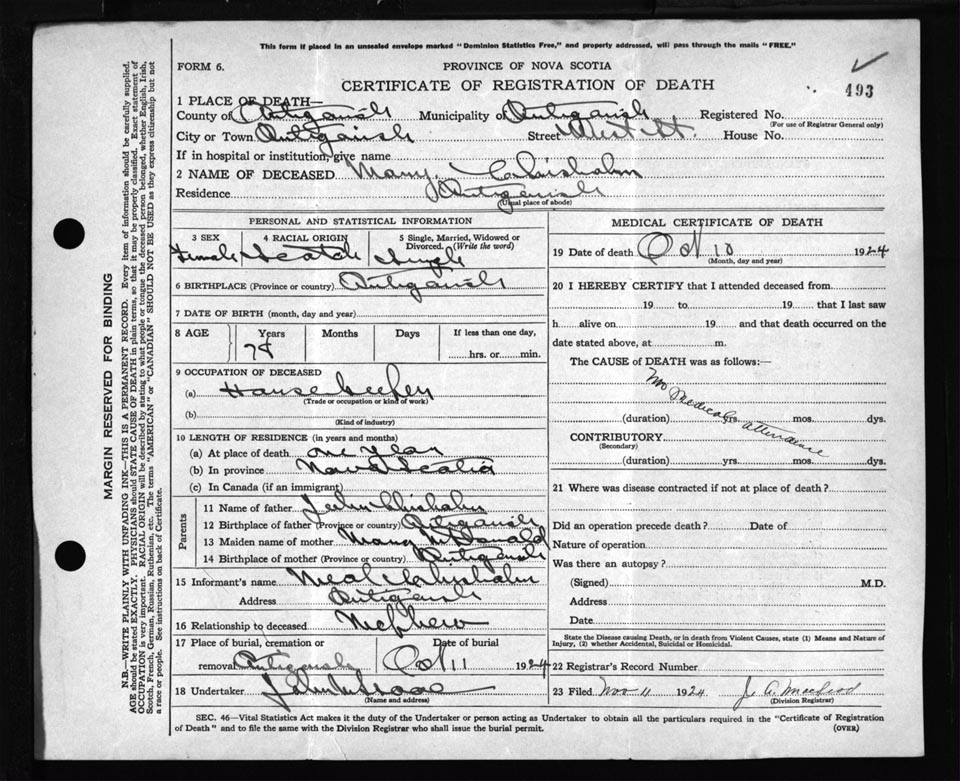 This form if placed in an unsealed envelope marked "Dominion Statistics Free," and properly addressed, will pass through the mails "FREE."
FORM 6.
PROVINCE OF NOVA SCOTIA
CERTIFICATE OF REGISTRATION OF DEATH
493
1 PLACE OF DEATH—
County of Antigonish Municipality of Antigonish Registered No.
(For use of Registrar General only)
City or Town Antigonish Street West St House No.
If in hospital or institution, give name
2 NAME OF DECEASED Mary Chisholm
Residence Antigonish
(Usual place of abode)
PERSONAL AND STATISTICAL INFORMATION
3 SEX 4 RACIAL ORIGIN 5 Single, Married, Widowed or Divorced. (Write the word)
Female Scotch Single
6 BIRTHPLACE (Province or country) Antigonish
7 DATE OF BIRTH (month, day and year)
8 AGE Years Months Days If less than one day,
hrs. or min.
9 OCCUPATION OF DECEASED
(a) House keeper
(Trade or occupation or kind of work)
(b)
(Kind of industry)
10 LENGTH OF RESIDENCE (in years and months)
(a) At place of death one year
(b) In province Nova Scotia
(c) In Canada (if an immigrant)
Parents
11 Name of father John Chisholm
12 Birthplace of father (Province or country) Antigonish
13 Maiden name of mother Mary McDonald
14 Birthplace of mother (Province or country) Antigonish
15 Informant's name Neal Chisholm
Address Antigonish
16 Relationship to deceased Nephew
17 Place of burial, cremation or Date of burial
removal Antigonish Oct 11 1924
18 Undertaker John
(Name and address)
MEDICAL CERTIFICATE OF DEATH
19 Date of death Oct 10 1924
(Month, day and year)
20 I HEREBY CERTIFY that I attended deceased from
19 to 19 that I last saw
h alive on 19 and that death occurred on the
date stated above, at m.
The CAUSE of DEATH was as follows:—
No Medical attendance
(duration) yrs. mos. dys.
CONTRIBUTORY
(Secondary)
(duration) yrs. mos. dys.
21 Where was disease contracted if not at place of death?
Did an operation precede death? Date of
Nature of operation
Was there an autopsy?
(Signed) M.D.
Address
Date
State the Disease causing Death, or in death from Violent Causes, state (1) Means and Nature of
Injury, (2) whether Accidental, Suicidal or Homicidal.
22 Registrar's Record Number
23 Filed Nov 11 1924 J. A. Macleod
(Division Registrar)
SEC. 46—Vital Statistics Act makes it the duty of the Undertaker or person acting as Undertaker to obtain all the particulars required in the "Certificate of Registration
of Death" and to file the same with the Division Registrar who shall issue the burial permit.
(OVER)
MARGIN RESERVED FOR BINDING
N.B.—WRITE PLAINLY WITH UNFADING INK—THIS IS A PERMANENT RECORD. Every item of information should be carefully supplied.
AGE should be stated EXACTLY. PHYSICIANS should STATE CAUSE OF DEATH in plain terms, so that it may be properly classified. Exact statement of
OCCUPATION is very important. RACIAL ORIGIN will be described by stating to what people or tongue the deceased person belonged, whether English, Irish,
Scotch, French, German, Russian, Ruthenian, etc. The terms "AMERICAN" or "CANADIAN" SHOULD NOT BE USED as they express citizenship but not
a race or people. See instructions on back of Certificate.